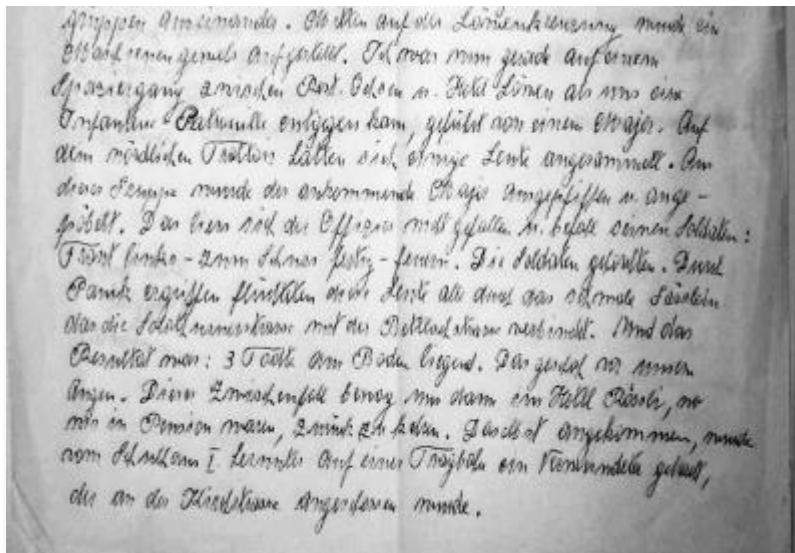 gruppen auseinander. Mitten auf der Löwenkreuzung wurde ein
Maschinengewehr aufgestellt. Ich war nun gerade auf einem
Spaziergang zwischen Rest. Ochsen u. Hotel Löwen als uns eine
Infanterie Patrouille entgegen kam, geführt von einem Major. Auf
dem nördlichen Trottoir hatten sich einige Leute angesammelt. Aus
dieser Gruppe wurde der ankommende Major ausgepfiffen u. ange-
pöbelt. Das liess sich der Offizier nicht gefallen u. befahl seinen Soldaten:
Front links - zum Schuss fertig - feuern. Die Soldaten gehorchten. Durch
Panik ergriffen flüchteten diese Leute alle durch das schmale Gässlein
das die Solothurnerstrasse mit der Bettlachstrasse verbindet. Und das
Resultat war: 3 Todte am Boden liegend. Das geschah vor unsern
Augen. Dieser Zwischenfall bewog uns dann ins Hotel Rössli, wo
wir in Pension waren, zurück zu kehren. Daselbst angekommen, wurde
vom Schulhaus I herunter auf einer Tragbahre ein Verwundeter gebracht,
der an der Kirchstrasse angeschossen wurde.